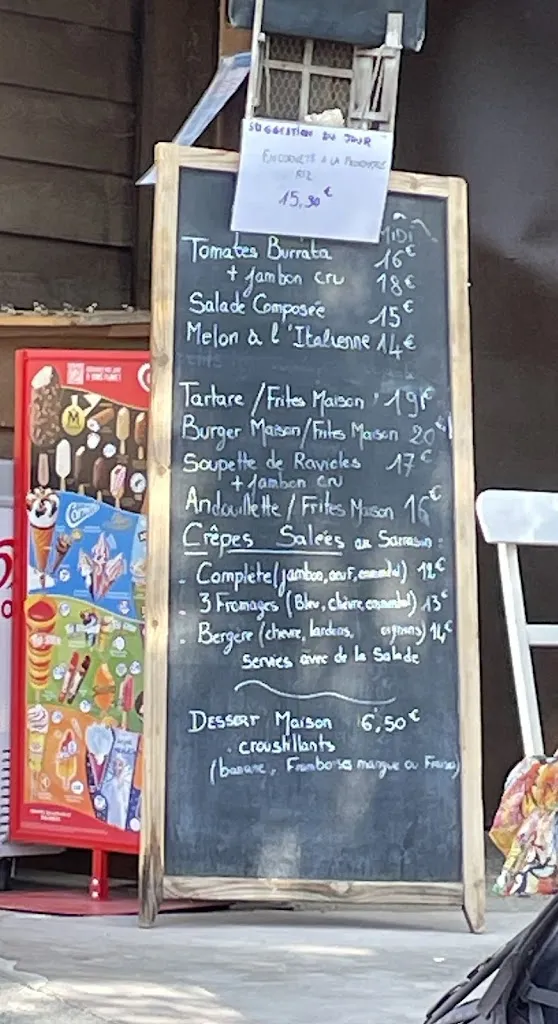 SUGGESTION DU JOUR
ENCORNETS A LA
RIZ
15,90€
MIDI
Tomates Burrata 16€
+ jambon cru 18€
Salade Composée 15€
Melon à l'Italienne 14€
Tartare / Frites Maison 19€
Burger Maison / Frites Maison 20€
Soupette de Ravioles 17€
+ jambon cru
Andouillette / Frites Maison 16€
Crêpes Salées au Sarrasin :
. Complète (jambon, oeuf, emmental) 12€
. 3 Fromages (Bleu, chèvre, emmental) 13€
. Bergère (chèvre, lardons, oignons) 14€
Servies avec de la Salade
DESSERT Maison 6,50€
. croustillants
(banane, Framboises mangue ou Fraises)